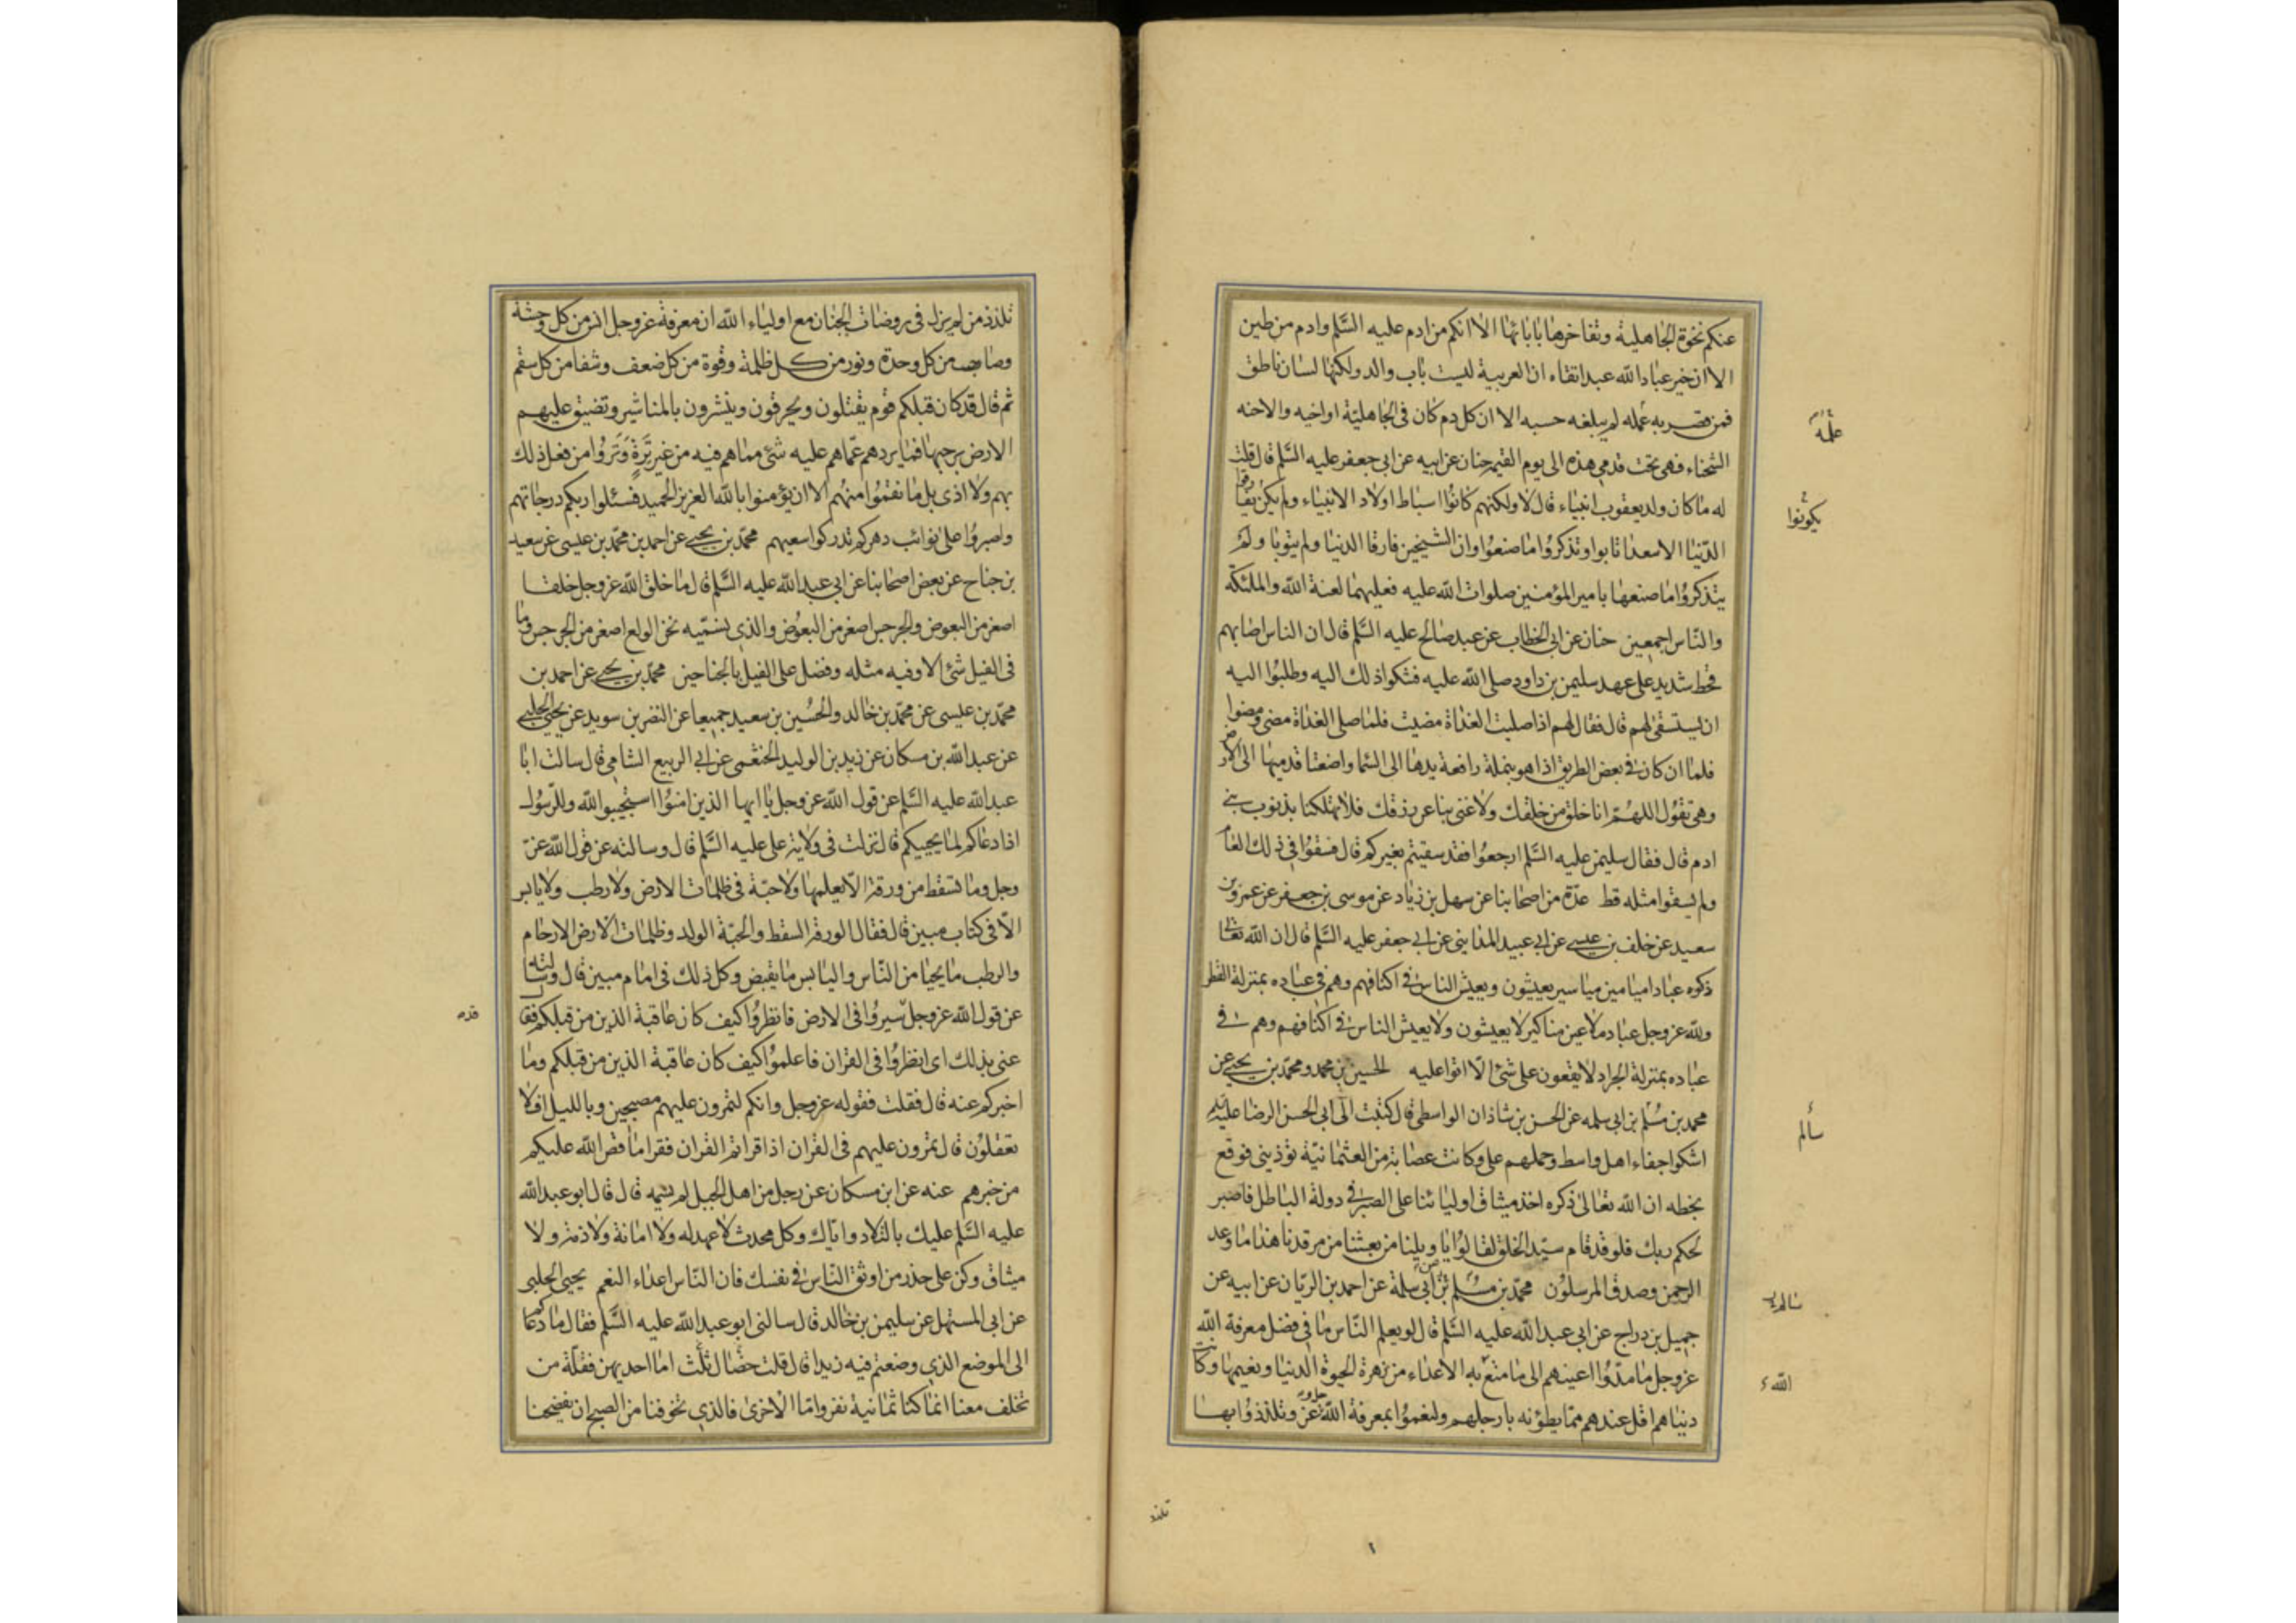 عنكم نخوة الجاهلية وتفاخرها بابائها الا انكم من ادم عليه السلم وادم من طين
الا ان خير عباد الله عبد اتقاه ان العربية ليست باب والد ولكنها لسان ناطق
فمن قصر به عمله لم يبلغه حسبه الا ان كل دم كان فى الجاهلية او اخيه والاحنه
الشحناء فهى تحت قدمى هذه الى يوم القيمة حنان عن ابيه عن ابى جعفر عليه السلم قال قلت
له ما كان ولد يعقوب انبياء قال لا ولكنهم كانوا اسباط اولاد الانبياء ولم يكن يفارقوا
الدنيا الا سعدا تابوا وتذكروا ما صنعوا وان الشيخين فارقا الدنيا ولم يتوبا ولم
يتذكروا ما صنعها بامير المؤمنين صلوات الله عليه فعليهما لعنة الله والملئكة
والناس اجمعين حنان عن ابى الخطاب عن عبد صالح عليه السلم قال ان الناس اصابهم
قحط شديد على عهد سليمن بن داود صلى الله عليه فشكوا ذلك اليه وطلبوا اليه
ان يستسقى لهم قال فقال لهم اذا صليت الغداة مضيت فلما صلى الغداة مضى ومضوا
فلما ان كان فى بعض الطريق اذا هو بنملة رافعة يدها الى السما واضعتا قدميها الى الارض
وهى تقول اللهم انا خلق من خلقك ولا غنى بنا عن رزقك فلا تهلكنا بذنوب بنى
ادم قال فقال سليمن عليه السلم ارجعوا فقد سقيتم بغيركم قال فسقوا فى ذلك العام
ولم يسقوا مثله قط عدة من اصحابنا عن سهل بن زياد عن موسى بن جعفر عن عمرو بن
سعيد عن خلف بن عيسى عن ابى عبيد المداينى عن ابى جعفر عليه السلم قال ان الله تعالى
ذكره عبادا ميامين مياسير يعيشون ويعيش الناس فى اكنافهم وهم فى عباده بمنزلة القطر
ولله عز وجل عباد ملاعين مناكير لا يعيشون ولا يعيش الناس فى اكنافهم وهم فى
عباده بمنزلة الجراد لا يقعون على شئ الا اتوا عليه الحسين بن محمد ومحمد بن يحيى عن
محمد بن مسلم بن ابى سلمه عن الحسن بن شاذان الواسطى قال كتبت الى ابى الحسن الرضا عليه
اشكو جفاء اهل واسط وحملهم على وكانت عصابة من العثمانية تؤذينى فوقع
بخطه ان الله تعالى ذكره اخذ ميثاق اوليائنا على الصبر فى دولة الباطل فاصبر
لحكم ربك فلو قد قام سيد الخلق لقالوا يا ويلنا من بعثنا من مرقدنا هذا ما وعد
الرحمن وصدق المرسلون محمد بن مسلم بن ابى سلمة عن احمد بن الريان عن ابيه عن
جميل بن دراج عن ابى عبد الله عليه السلم قال لو يعلم الناس ما فى فضل معرفة الله
عز وجل ما مدوا اعينهم الى ما متع به الاعداء من زهرة الحيوة الدنيا ونعيمها وكانت
دنياهم اقل عندهم مما يطؤنه بارجلهم ولنعموا بمعرفة الله عز وجل وتلذذوا بها
عمله
يكونوا
سالم
الله
تلذذ
تلذذ من لم يزل فى روضات الجنان مع اولياء الله ان معرفة عز وجل انس من كل وحشة
وصاحب من كل وحدة ونور من كل ظلمة وقوة من كل ضعف وشفا من كل سقم
ثم قال قد كان قبلكم قوم يقتلون ويحرقون وينشرون بالمناشير وتضيق عليهم
الارض برحبها فما يردهم عما هم عليه شئ مما هم فيه من غير ترة وتروا من فعل ذلك
بهم ولا اذى بل ما نقموا منهم الا ان يؤمنوا بالله العزيز الحميد فسئلوا ربكم درجاتهم
واصبروا على نوائب دهركم تدركوا سعيهم محمد بن يحيى عن احمد بن محمد بن عيسى عن سعيد
بن جناح عن بعض اصحابنا عن ابى عبد الله عليه السلم قال ما خلق الله عز وجل خلقا
اصغر من البعوض والجرجس اصغر من البعوض والذى يسميه نحن الولع اصغر من الجرجس وما
فى الفيل شئ الا وفيه مثله وفضل على الفيل بالجناحين محمد بن يحيى عن احمد بن
محمد بن عيسى عن محمد بن خالد والحسين بن سعيد جميعا عن النضر بن سويد عن يحيى الحلبى
عن عبد الله بن مسكان عن زيد بن الوليد الخثعمى عن ابى الربيع الشامى قال سالت ابا
عبد الله عليه السلم عن قول الله عز وجل يا ايها الذين امنوا استجيبوا لله وللرسول
اذا دعاكم لما يحييكم قال نزلت فى ولاية على عليه السلم قال وسالته عن قول الله عز
وجل وما تسقط من ورقة الا يعلمها ولا حبة فى ظلمات الارض ولا رطب ولا يابس
الا فى كتاب مبين قال فقال الورقة السقط والحبة الولد وظلمات الارض الارحام
والرطب ما يحيا من الناس واليابس ما يقبض وكل ذلك فى امام مبين قال وسالته
عن قول الله عز وجل سيروا فى الارض فانظروا كيف كان عاقبة الذين من قبلكم فقا
عنى بذلك اى انظروا فى القران فاعلموا كيف كان عاقبة الذين من قبلكم وما
اخبركم عنه قال فقلت فقوله عز وجل وانكم لتمرون عليهم مصبحين وبالليل افلا
تعقلون قال تمرون عليهم فى القران اذا قراتم القران فقرا ما قص الله عليكم
من خبرهم عنه عن ابن مسكان عن رجل من اهل الجبل لم يسمه قال قال ابو عبد الله
عليه السلم عليك بالتلاد واياك وكل محدث لا عهد له ولا امانة ولا ذمة ولا
ميثاق وكن على حذر من اوثق الناس فى نفسك فان الناس اعداء النعم يحيى الحلبى
عن ابى المستهل عن سليمن بن خالد قال سالنى ابو عبد الله عليه السلم فقال ما دعاكم
الى الموضع الذى وضعتم فيه زيدا قال قلت خصال ثلث اما احديهن فقلة من
تخلف معنا انما كنا ثمانية نفر واما الاخرى فالذى تخوفنا من الصبح ان يفضحنا